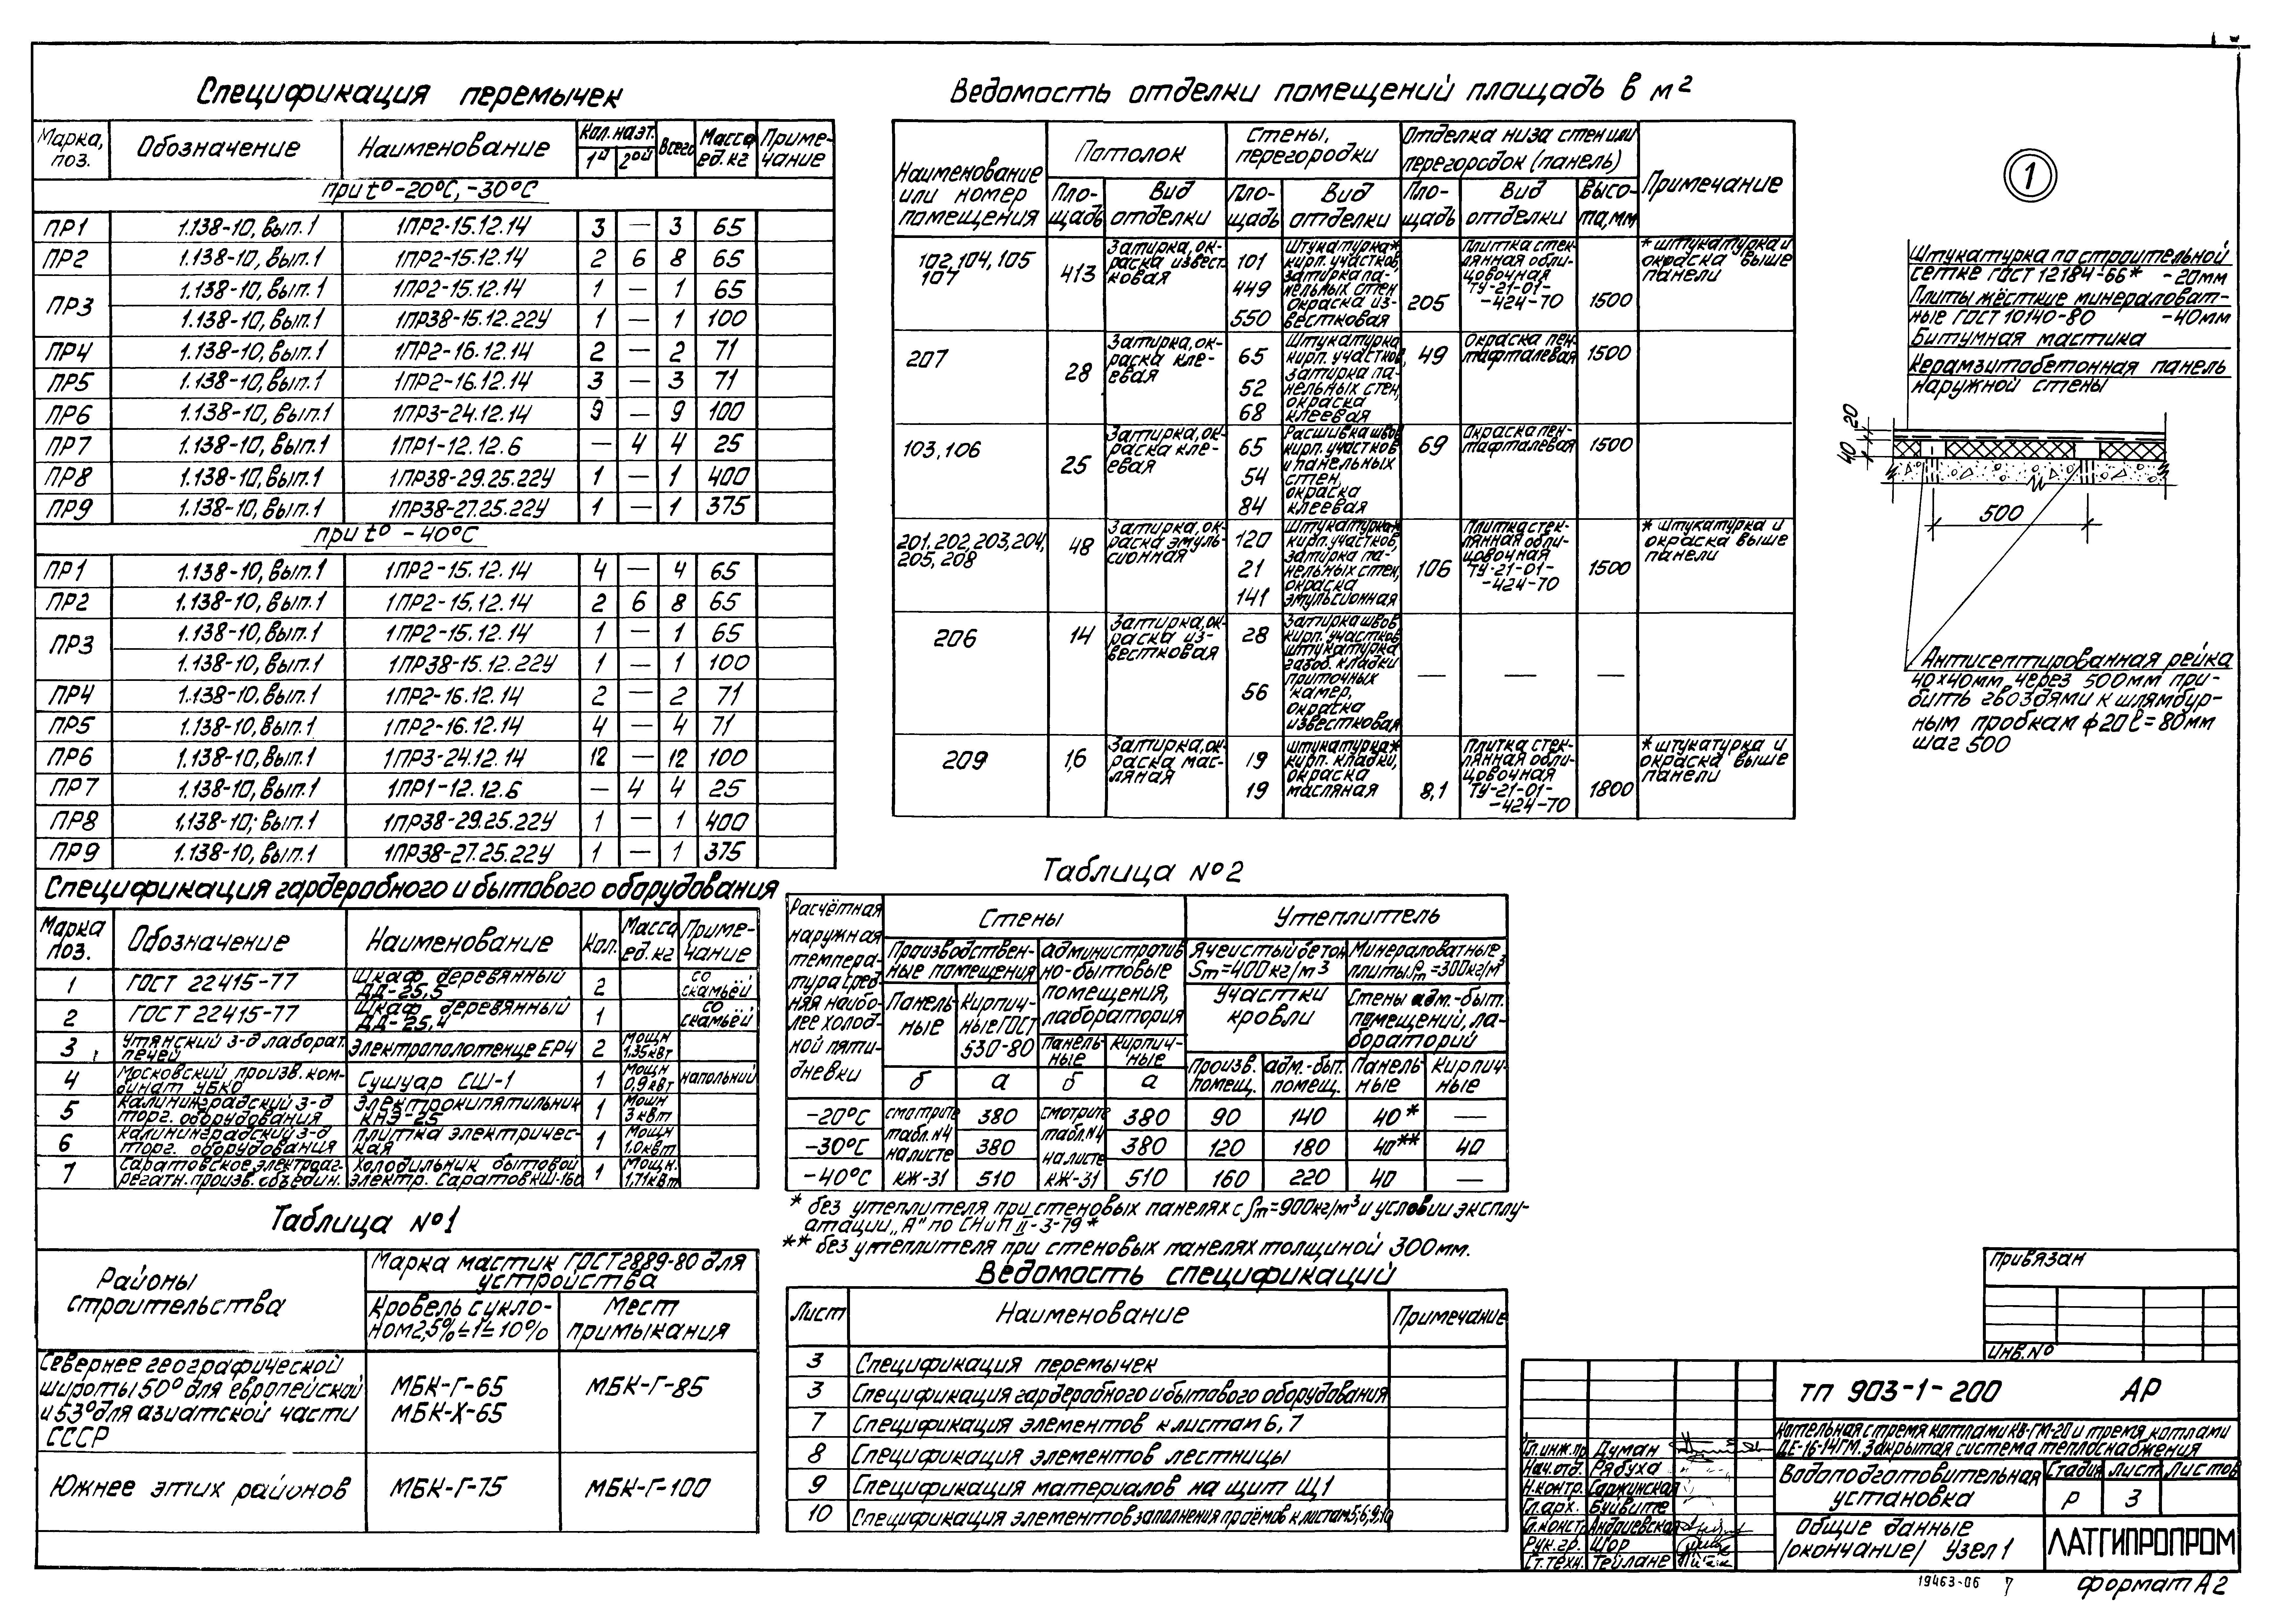 Спецификация перемычек
Марка, поз. Обозначение Наименование Кол. на эт. 1й 2ой Всего Масса ед. кг Примечание
при t° -20°С, -30°С
ПР1 1.138-10, вып.1 1ПР2-15.12.14 3 — 3 65
ПР2 1.138-10, вып.1 1ПР2-15.12.14 2 6 8 65
ПР3 1.138-10, вып.1 1ПР2-15.12.14 1 — 1 65
1.138-10, вып.1 1ПР38-15.12.22У 1 — 1 100
ПР4 1.138-10, вып.1 1ПР2-16.12.14 2 — 2 71
ПР5 1.138-10, вып.1 1ПР2-16.12.14 3 — 3 71
ПР6 1.138-10, вып.1 1ПР3-24.12.14 9 — 9 100
ПР7 1.138-10, вып.1 1ПР1-12.12.6 — 4 4 25
ПР8 1.138-10, вып.1 1ПР38-29.25.22У 1 — 1 400
ПР9 1.138-10, вып.1 1ПР38-27.25.22У 1 — 1 375
при t° -40°С
ПР1 1.138-10, вып.1 1ПР2-15.12.14 4 — 4 65
ПР2 1.138-10, вып.1 1ПР2-15.12.14 2 6 8 65
ПР3 1.138-10, вып.1 1ПР2-15.12.14 1 — 1 65
1.138-10, вып.1 1ПР38-15.12.22У 1 — 1 100
ПР4 1.138-10, вып.1 1ПР2-16.12.14 2 — 2 71
ПР5 1.138-10, вып.1 1ПР2-16.12.14 4 — 4 71
ПР6 1.138-10, вып.1 1ПР3-24.12.14 12 — 12 100
ПР7 1.138-10, вып.1 1ПР1-12.12.6 — 4 4 25
ПР8 1.138-10, вып.1 1ПР38-29.25.22У 1 — 1 400
ПР9 1.138-10, вып.1 1ПР38-27.25.22У 1 — 1 375
Спецификация гардеробного и бытового оборудования
Марка поз. Обозначение Наименование Кол. Масса ед. кг Примечание
1 ГОСТ 22415-77 Шкаф деревянный ДД-25,5 2 со скамьёй
2 ГОСТ 22415-77 Шкаф деревянный ДД-25,4 1 со скамьёй
3 Утянский з-д лаборат. печей Электрополотенце ЕР4 2 Мощн 1,35кВт
4 Московский произв. комбинат УБКО Сушуар СШ-1 1 Мощн 0,9кВт напольний
5 Калининградский з-д торг. оборудования Электрокипятильник КНЭ-25 1 Мошн 3 кВт
6 Калининградский з-д торг. оборудования Плитка электрическая 1 Мощн 1.0кВт
7 Саратовское электроагрегатн. произв. объедин. Холодильник бытовой электр. Саратов КШ-160 1 Мощн. 1,71кВт
Таблица №1
Районы строительства
Марка мастик ГОСТ 2889-80 для устройства
Кровель с уклоном 2,5% ≤ i ≤ 10%
Мест примыкания
Севернее географической
широты 50° для европейской
и 53° для азиатской части
СССР
МБК-Г-65
МБК-Х-65
МБК-Г-85
Южнее этих районов МБК-Г-75 МБК-Г-100
Ведомость отделки помещений площадь в м²
Наименование или номер помещения
Потолок
Площадь Вид отделки
Стены, перегородки
Площадь Вид отделки
Отделка низа стен или перегородок (панель)
Площадь Вид отделки Высота, мм
Примечание
102,104,105
107
413
Затирка, окраска известковая
101
449
550
Штукатурка*
кирп. участков,
затирка па-
нельных стен
окраска из-
вестковая
205
Плитка стек-
лянная обли-
цовочная
ТУ-21-01-
-424-70
1500
* штукатурка и
окраска выше
панели
207
28
Затирка, ок-
раска кле-
евая
65
52
68
Штукатурка
кирп. участков,
затирка па-
нельных стен,
окраска
клеевая
49
Окраска пен-
тафталевая
1500
103,106
25
Затирка, ок-
раска кле-
евая
65
54
84
Расшивка швов
кирп. участков
и панельных
стен,
окраска
клеевая
69
Окраска пен-
тафталевая
1500
201,202,203,204,
205,208
48
Затирка, ок-
раска эмуль-
сионная
120
21
141
Штукатурка*
кирп. участков,
затирка па-
нельных стен,
окраска
эмульсионная
106
Плитка стек-
лянная обли-
цовочная
ТУ-21-01-
-424-70
1500
* штукатурка и
окраска выше
панели
206
14
Затирка, ок-
раска из-
вестковая
28
56
Затирка швов
кирп. участков
штукатурка
газоб. кладки
приточных
камер,
окраска
известковая
— — —
209
1,6
Затирка, ок-
раска мас-
ляная
19
19
штукатурка*
кирп. кладки,
окраска
масляная
8,1
Плитка стек-
лянная обли-
цовочная
ТУ-21-01-
-424-70
1800
* штукатурка и
окраска выше
панели
Таблица №2
Расчётная
наружная
темпера-
тура сред-
няя наибо-
лее холод-
ной пяти-
дневки
Стены Утеплитель
Производствен-
ные помещения
административ
но-бытовые
помещения,
лаборатория
Ячеистый бетон
ρm=400кг/м3
Минераловатные
плиты ρm=300кг/м3
Панель-
ные
Кирпич-
ные ГОСТ
530-80
Панель-
ные
Кирпич-
ные
Участки
кровли
Стены адм.-быт.
помещений, ла-
бораторий
б а б а
Произв. помещ.
адм.-быт. помещ.
Панельные
Кирпичные
-20°С смотрите 380 смотрите 380 90 140 40* —
-30°С табл.№4 на листе 380 табл.№4 на листе 380 120 180 40** 40
-40°С КЖ-31 510 КЖ-31 510 160 220 40 —
* без утеплителя при стеновых панелях с ρm=900кг/м3 и условии эксплу-
атации „А" по СНиП II-3-79*
** без утеплителя при стеновых панелях толщиной 300мм.
Ведомость спецификаций
Лист Наименование Примечание
3 Спецификация перемычек
3 Спецификация гардеробного и бытового оборудования
7 Спецификация элементов к листам 6, 7
8 Спецификация элементов лестницы
9 Спецификация материалов на щит Щ1
10 Спецификация элементов заполнения проёмов к листам 5,6,9,10
1
Штукатурка по строительной
сетке ГОСТ 12184-66* -20мм
Плиты жёсткие минераловат-
ные ГОСТ 10140-80 -40мм
Битумная мастика
Керамзитобетонная панель
наружной стены
20
40
500
Антисептированная рейка
40х40мм через 500мм при-
бить гвоздями к шлямбур-
ным пробкам ф20 l=80мм
шаг 500
Привязан
Инв.№
ТП 903-1-200 АР
Котельная с тремя котлами КВ-ГМ-20 и тремя котлами
ДЕ-16-14ГМ. Закрытая система теплоснабжения
Гл.инж.пр. Думан
Нач.отд. Рябуха
Н.контр. Саржинская
Гл.арх. Буйвите
Гл.констр. Андриевская
Рук.гр. Шор
Ст.техн. Тейлане
Водоподготовительная
установка
Стадия Лист Листов
Р 3
Общие данные
/окончание/ Узел 1
ЛАТГИПРОПРОМ
19463-06 7
формат А2